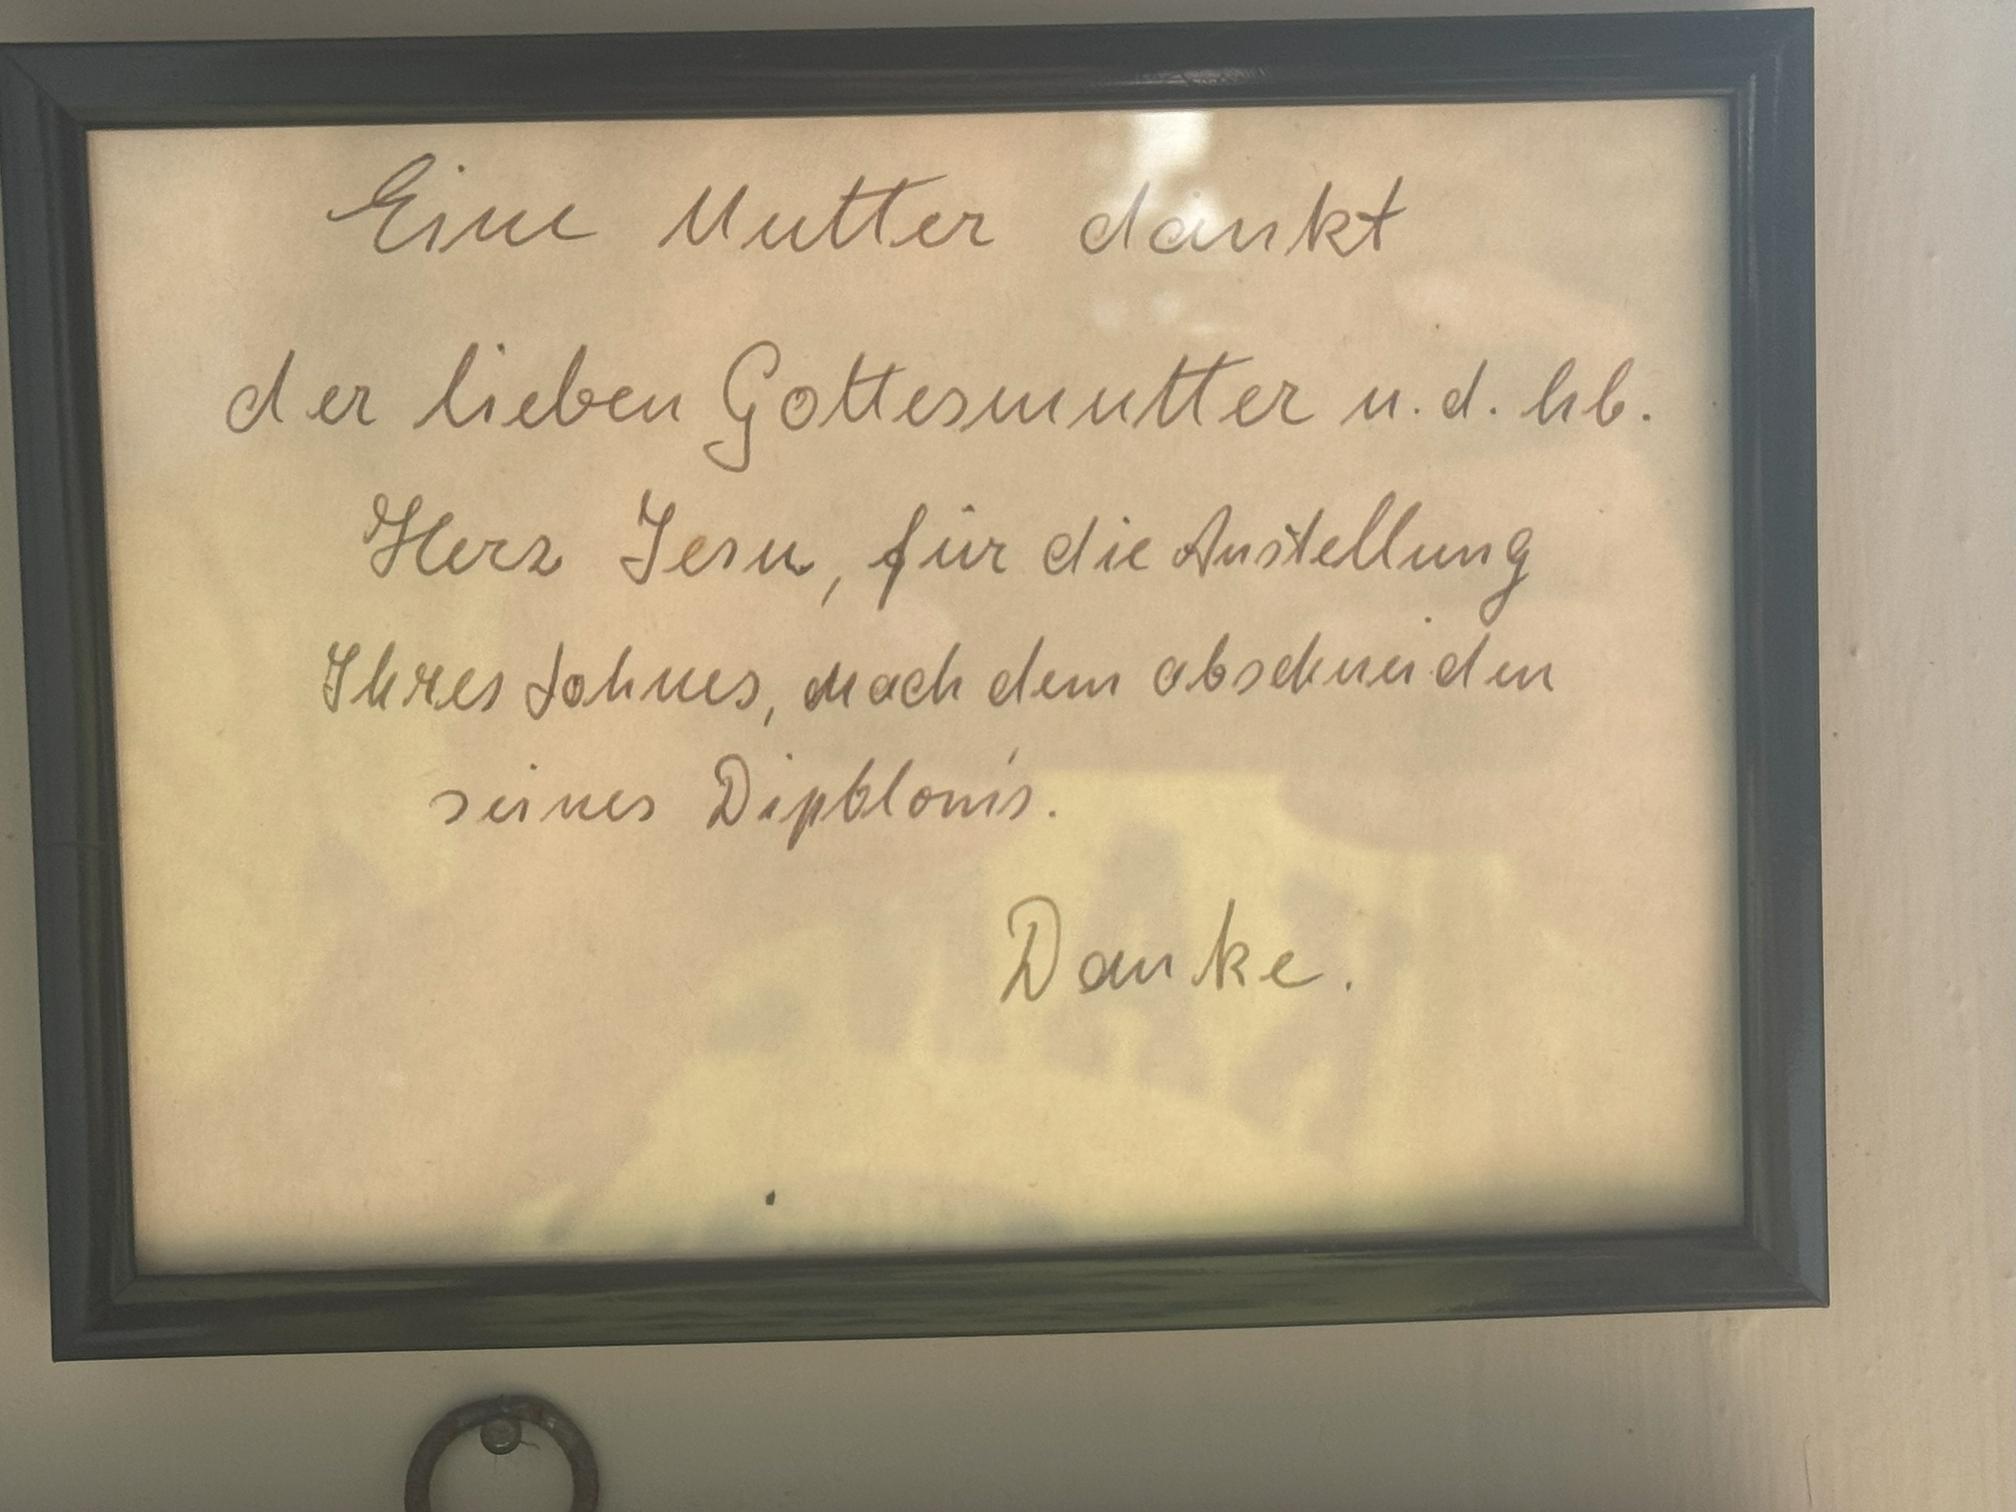 Eine Mutter dankt
der lieben Gottesmutter u. d. hb.
Herz Jesu, für die Anstellung
Ihres Sohnes, nach dem abschneiden
seines Dipbloms.
Danke.